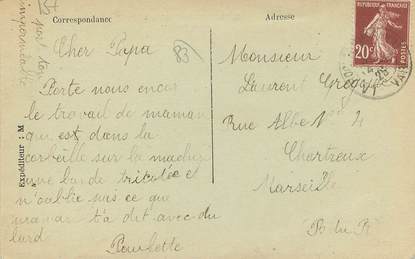 Correspondance
Adresse
RÉPUBLIQUE FRANÇAISE
20c
POSTES
VAR
83
Cher Papa
Porte nous encore
le travail de maman
qui est dans la
corbeille sur la machine
une bande tricotée et
n'oublie pas ce que
maman t'a dit avec du
lard
Paulette
porte ton
imperméable
Expéditeur : M
Monsieur
Laurent
Rue Albe No 4
Chartreux
Marseille
B du R